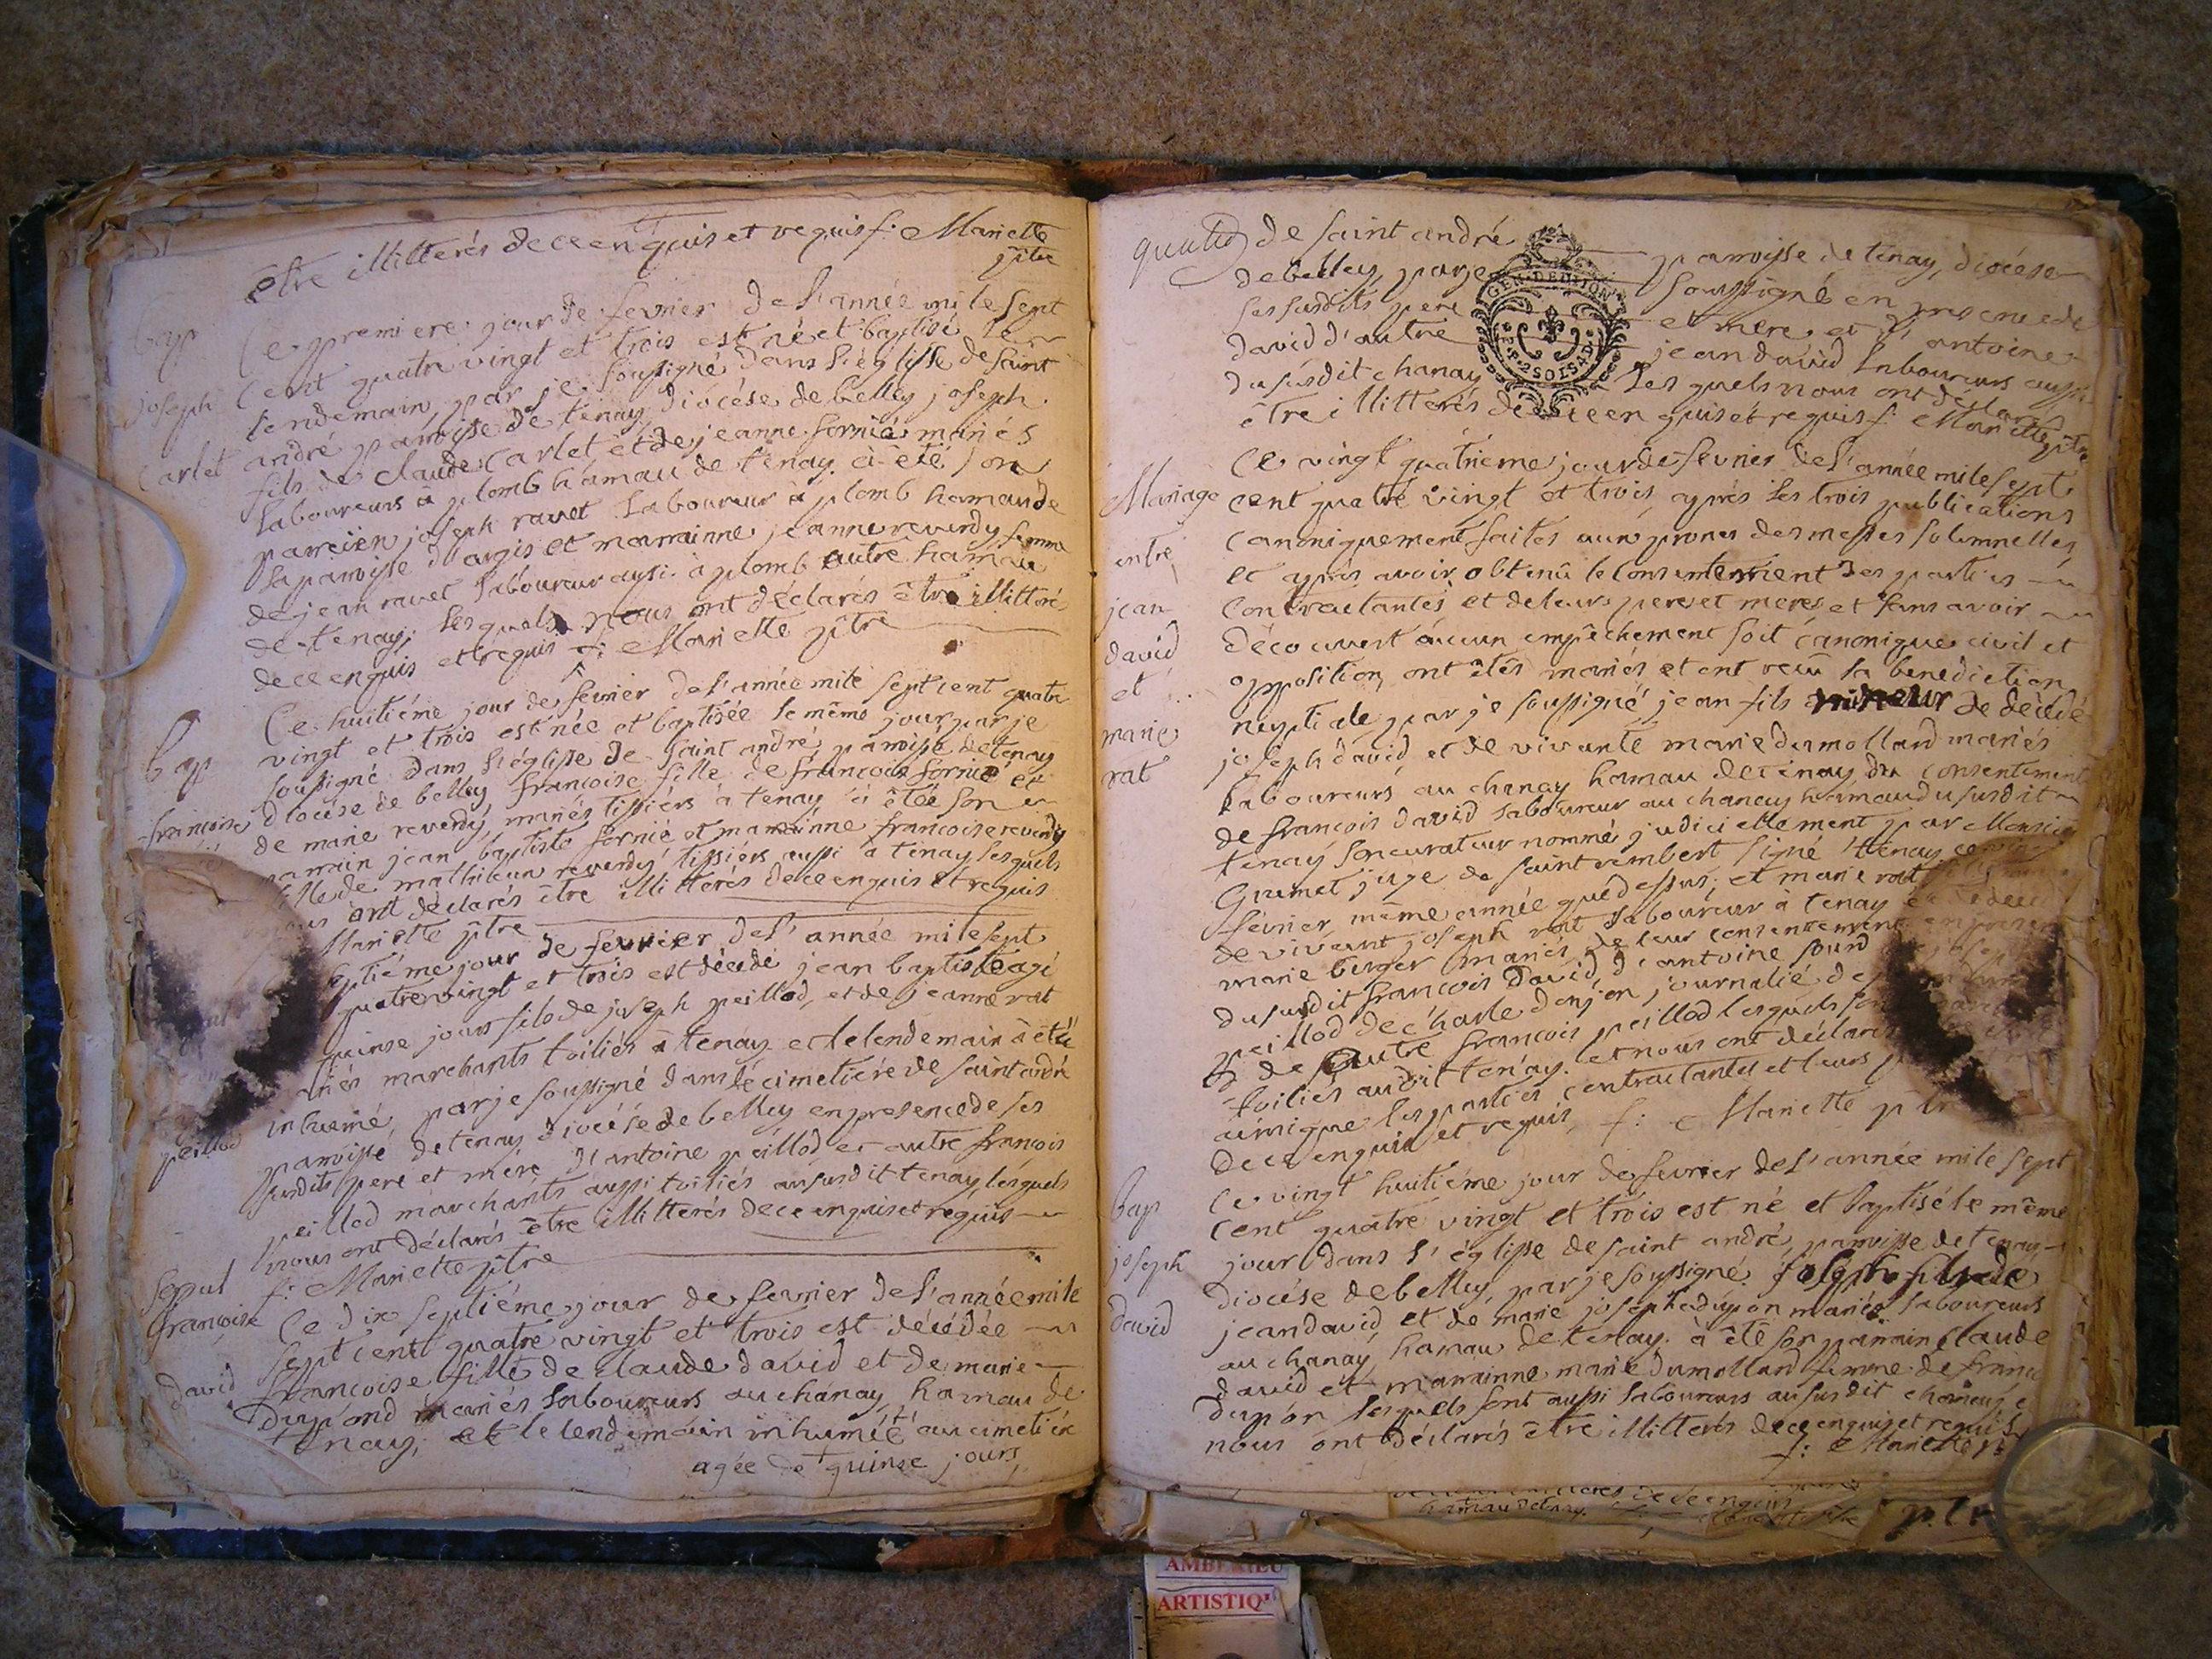 être illitterés de ce enquis et requis f: Mariette
ptre
bap
Ce premiere jour de fevrier de l'année mile sept
cent quatre vingt et trois est né et baptisé le
joseph
lendemain, par je soussigné dans l'église de saint
andré paroisse de tenay, diocése de belley joseph
Carlet
fils de claude Carlet et de jeanne fornié mariés
laboureurs à plomb hamau de tenay à été son
parreien joseph ravet laboureur à plomb hamau de
la paroisse d'argis et marrainne jeanne reverdy femme
de jean ravet laboureur aussi à plomb autre hamau
de tenay; lesquels nous ont déclarés être illitteré
de ce enquis et requis f: Mariette ptre
Ce huitiéme jour de fevrier de l'année mile sept cent quatre
bap
vingt et trois est née et baptisée le même jour par je
soussigné dans l'église de saint andré paroisse de tenay
françoise
diocése de belley françoise fille de françois fornié et
de marie reverdy, mariés tissiérs à tenay à étée son
parrain jean baptiste fornié et marrainne francoise reverdy
fille de mathieu reverdy tissiérs aussi à tenay lesquels
nous ont déclarés être illitterés de ce enquis et requis
Mariette ptre
septiéme jour de fevrier de l'année mile sept
quatre vingt et trois est décédé jean baptiste agé
quinse jours fils de joseph peillod, et de jeanne rat
mariés marchants toiliés à tenay et le lendemain à été
inhumé, par je soussigné dans le cimetiére de saint andré
peillod
paroisse de tenay diocése de belley en presence de ses
susdits pere et mére d'antoine peillod et autre françois
peillod marchants aussi toiliés au susdit tenay, lesquels
nous ont déclarés être illitterés de ce enquis et requis
f: Mariette ptre
sepul
françoise
Ce dix septiéme jour de fevrier de l'année mile
sept cent quatre vingt et trois est décédée
david
françoise fille de claude david et de marie
dupond mariés laboureurs au chanay, hamau de
tenay; et le lendemain inhumée au cimetiére
agée de quinse jours
quatre
de saint andré paroisse de tenay, diocése
de belley, par je soussigné en presence de
ses susdits pere et mere, et d'antoine
david d'autre jean david laboureurs aussi
du susdit chanay lesquels nous ont déclarés
être illitterés de ce enquis et requis f: Mariette ptre
GEN. DEDIION
Ce vingt quatrieme jour de fevrier de l'année mile sept
Mariage
cent quatre vingt et trois, aprés les trois publications
canoniquement faites aux prones des messes solemnelles
entre
et aprés avoir obtenû le consentement des parties
jean
contractantes et de leurs peres et meres et sans avoir
david
découvert aucun empêchement soit canonique civil et
et
opposition ont étés mariés et ont reçû la benediction
marie
nuptiale par je soussigné jean fils mineur de dècédé
rat
joseph david, et de vivante marie dumollard mariés
laboureurs au chanay hamau de tenay du consentement
de françois david laboureur au chanay hamau du susdit
tenay son curateur nommé judiciellement par Monsieur
Grumet juge de saint rembert signé tenay ce vingt
février même année que dessus; et marie rat
de vivant joseph rat laboureur à tenay
marie berger mariés, de leur consentement en presence
du susdit françois david, d'antoine
peillod de charle donjon, journalié de
de autre françois peillod lesquels sont
toiliés au dit tenay. et nous ont déclarés
ainsi que les parties contractantes et leurs
de ce enquis et requis, f: Mariette ptr
Ce vingt huitiéme jour de fevrier de l'année mile sept
bap
cent quatre vingt et trois est né et baptisé le même
joseph
jour dans l'église de saint andré, paroisse de tenay
diocése de belley, par je soussigné joseph fils de
david
jean david et de marie josephe dupon mariés laboureurs
au chanay, hamau de tenay. à été son parrain claude
david et marrainne marie dumollard femme de franc
dupon lesquels sont aussi laboureurs au susdit chanay
nous ont déclarés être illitterés de ce enquis et requis
f: Mariette
hamau de tenay
ptr
ARTISTIQ